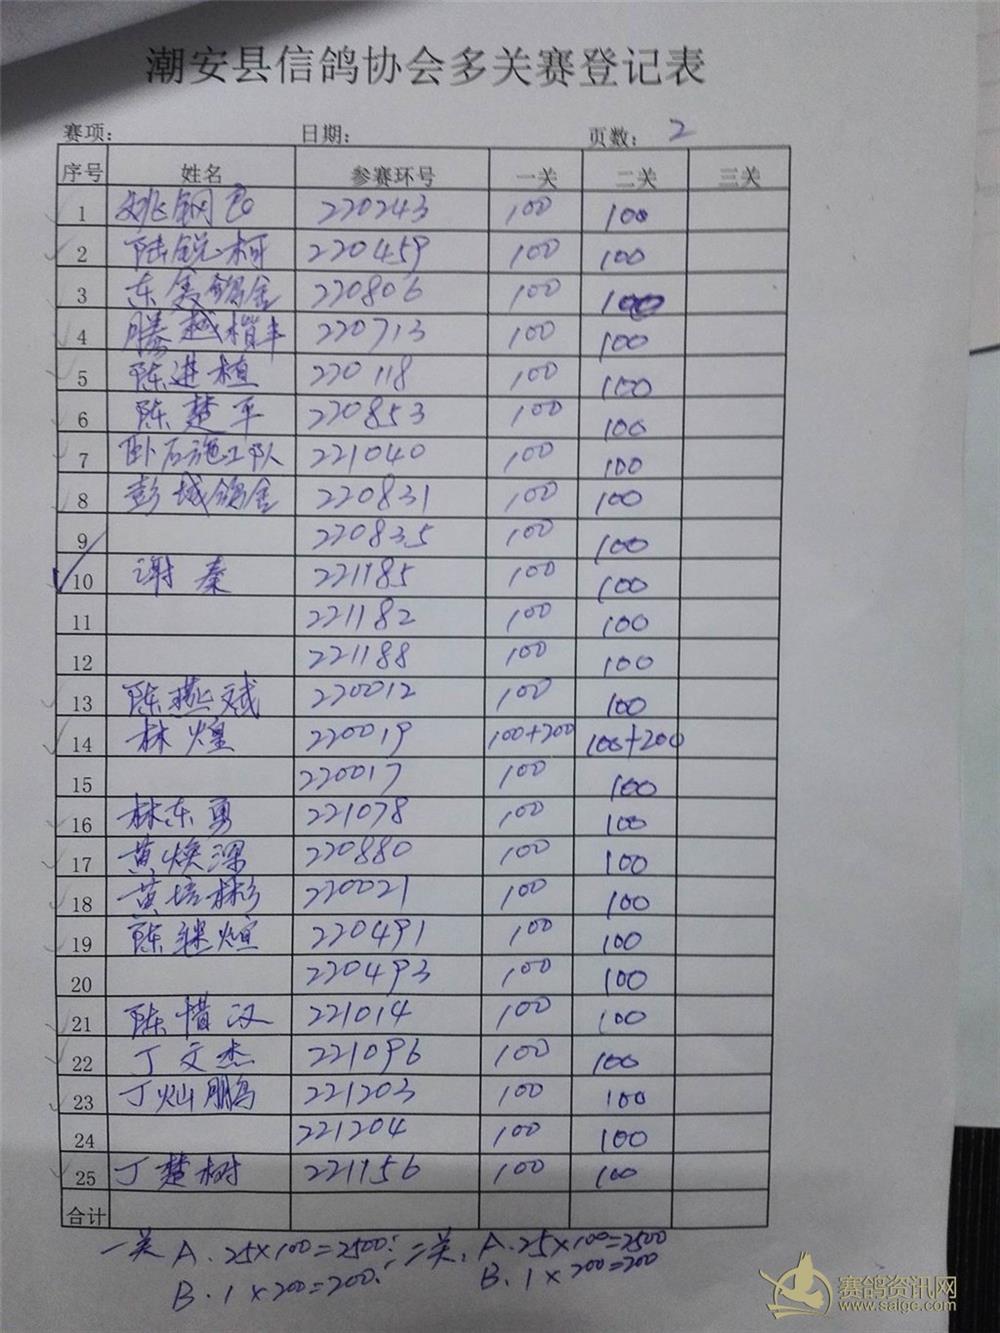 潮安县信鸽协会多关赛登记表
赛项： 日期： 页数： 2
序号 姓名 参赛环号 一关 二关 三关
1 姚钢 220243 100 100
2 陆锐柯 220459 100 100
3 东美鸽舍 220806 100 100
4 腾越楷丰 220713 100 100
5 陈进植 220118 100 100
6 陈楚平 220853 100 100
7 卧石施工队 221040 100 100
8 彭城鸽舍 220831 100 100
9 220835 100 100
10 谢秦 221185 100 100
11 221182 100 100
12 221188 100 100
13 陈燕斌 220012 100 100
14 林煌 220019 100+200 100+200
15 220017 100 100
16 林东勇 221078 100 100
17 黄焕深 220880 100 100
18 黄培彬 220021 100 100
19 陈继煊 220491 100 100
20 220493 100 100
21 陈惜汉 221014 100 100
22 丁文杰 221096 100 100
23 丁灿鹏 221203 100 100
24 221204 100 100
25 丁楚树 221156 100 100
合计
一关 A. 25×100=2500; 二关. A. 25×100=2500
B. 1×200=200; B. 1×200=200
赛鸽资讯网
www.saigc.com